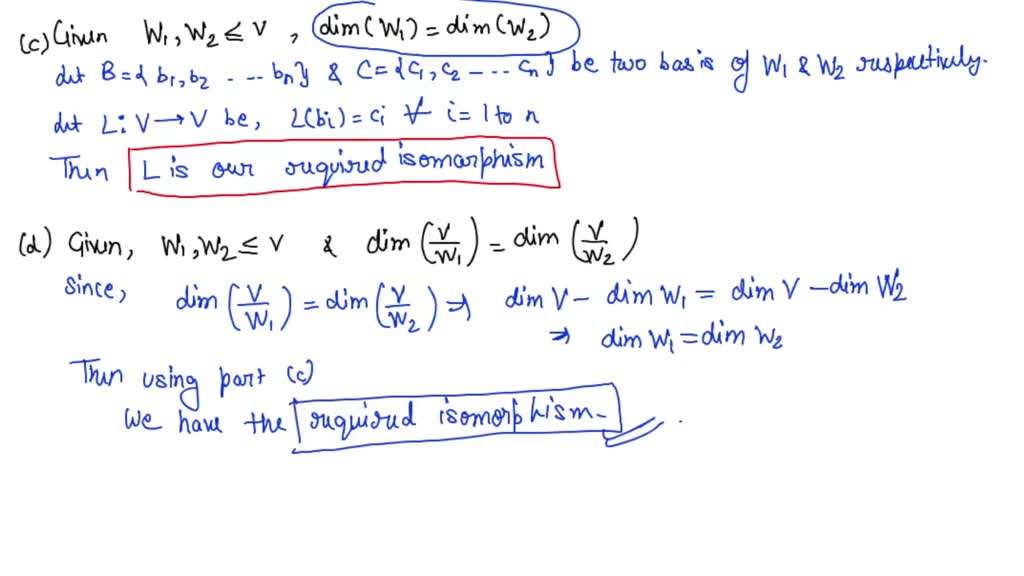 (c) Given W₁, W₂ ≤ V , dim(W₁) = dim(W₂)
Let B = { b₁, b₂ - -- bₙ } & C = { C₁, C₂ -- -- Cₙ } be two basis of W₁ & W₂ respectively.
Let L: V → V be, L(bi) = ci ∀ i = 1 to n
Then L is our required isomorphism
(d) Given, W₁, W₂ ≤ V & dim (V/W₁) = dim (V/W₂)
Since, dim (V/W₁) = dim (V/W₂) ⇒ dim V - dim W₁ = dim V - dim W₂
⇒ dim W₁ = dim W₂
Then using part (c)
We have the required isomorphism.